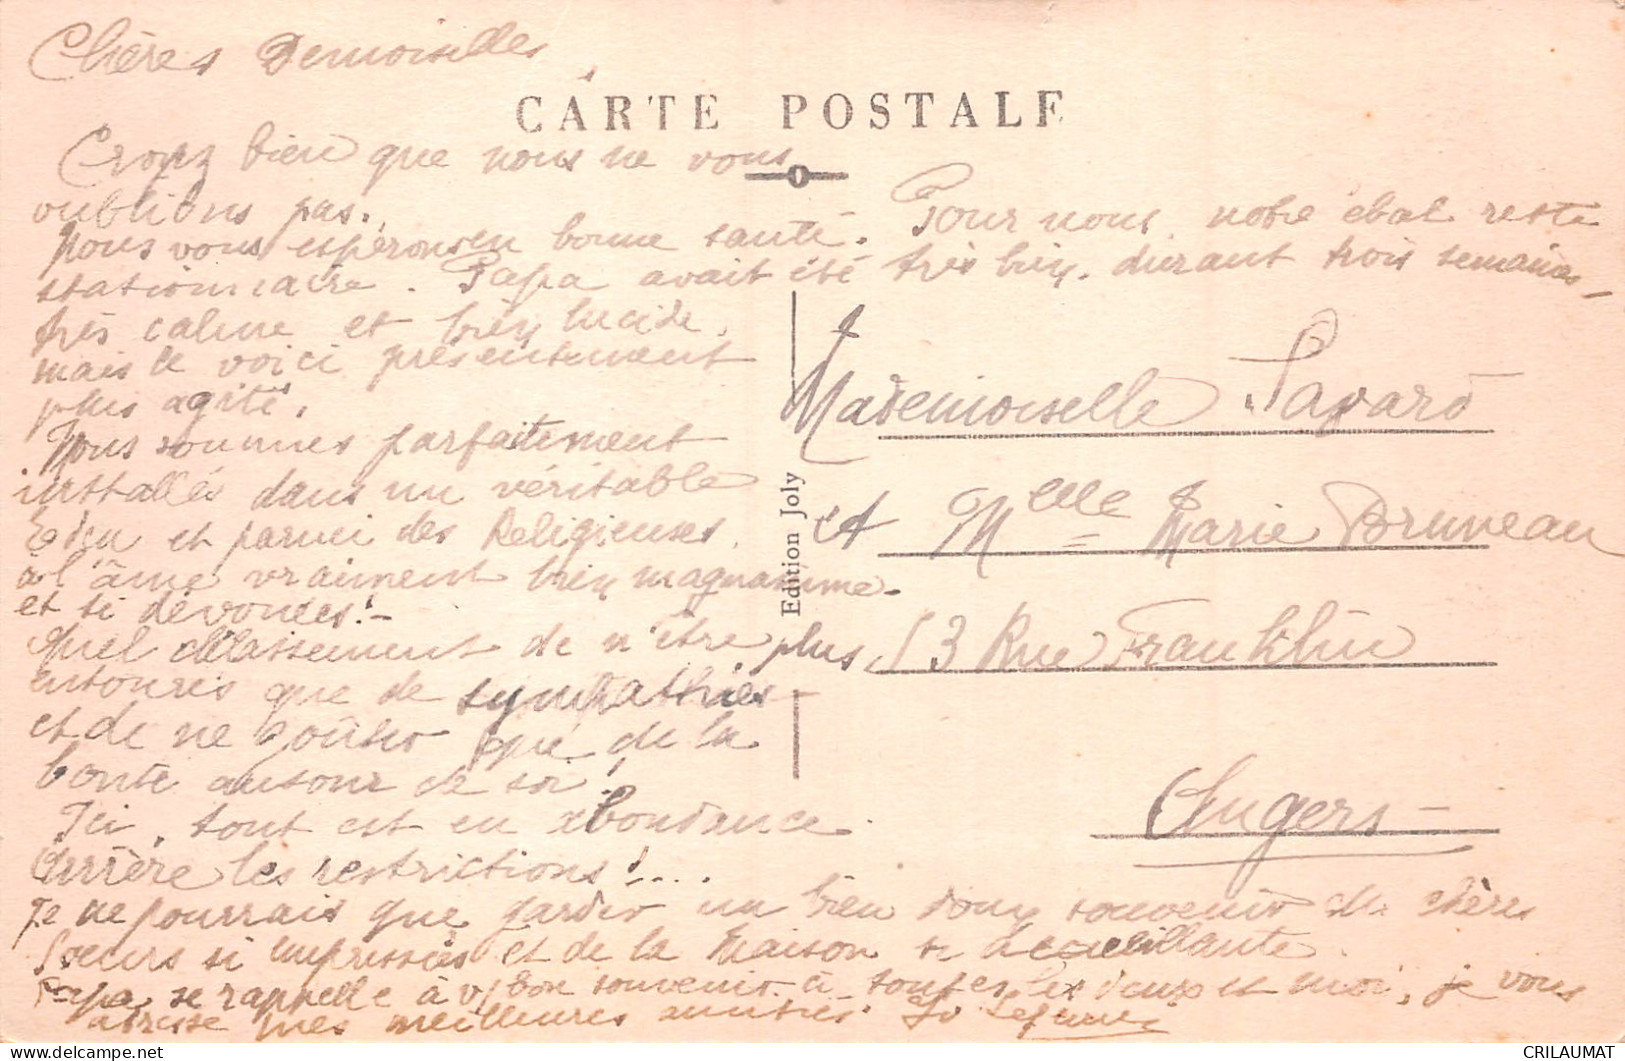 Chères Demoiselles
CARTE POSTALE
Croyez bien que nous ne vous
oublions pas.
Nous vous espérons en bonne santé. Pour nous, notre état reste
stationnaire. Papa avait été très bien, durant trois semaines,
très calme et bien lucide,
mais le voici présentement
plus agité.
Nous sommes parfaitement
installés dans un véritable
Eden et parmi des Religieuses,
à l'âme vraiment bien magnanime
et si dévouées!
Quel délassement de n'être plus
entourés que de sympathies
et de ne goûter que de la
bonté autour de soi!
Ici, tout est en abondance
Arrière les restrictions!....
Je ne pourrais que garder un bien doux souvenir de chères
Soeurs si et de la Maison si accueillante.
Papa se rappelle à v/ bon souvenir à toutes les deux et moi, je vous
adresse mes meilleures amitiés.
Edition Joly
Mademoiselle Pavard
et Melle Marie Bruneau
53 Rue Franklin
Angers
CRILAUMAT